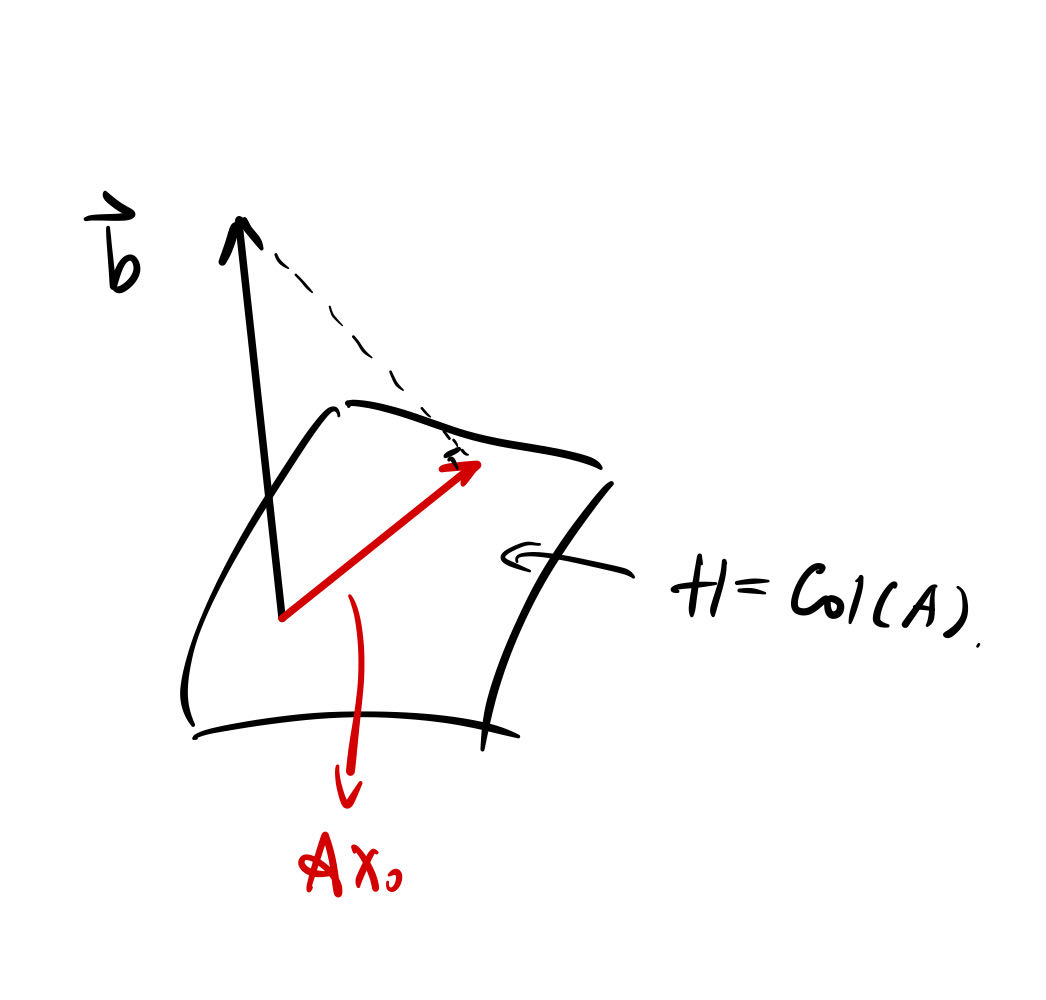 b⃗
H = Col(A).
Ax₀